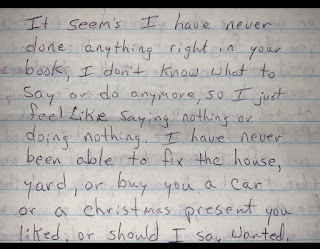 It seem's I have never
done anything right in your
book, I don't know what to
say or do anymore, so I just
feel like saying nothing or
doing nothing. I have never
been able to fix the house,
yard, or buy you a car
or a christmas present you
liked, or should I say wanted.